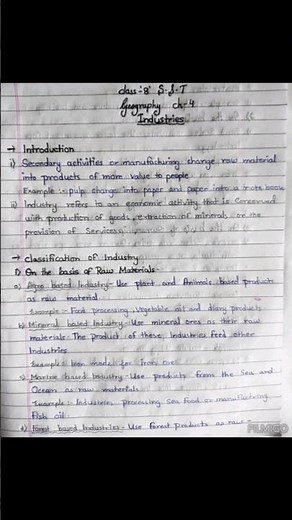 class :- 8 S.S.T
Geography ch-4
Industries
→ Introduction
i) Secondary activities or manufacturing change raw material
into products of more value to people.
Example :- pulp change into paper and paper into a note book
ii) Industry refers to an economic activity that is concerned
with production of goods, extraction of minerals or the
provision of services
→ Classification of Industry
1) On the basis of Raw Materials -
a) Agro based Industry - Use plant and Animals based products
as raw material
Example - Food processing, Vegetable oil and diary products
b) Mineral based Industry - Use mineral ores as their raw
materials. The product of these industries feed other
Industries
Example - Iron made for iron ore
c) Marine based Industry - Use products from the Sea and
Ocean as raw materials.
Example - Industries processing sea food or manufacturing
Fish oil
Forest based Industries - Use forest products as raw